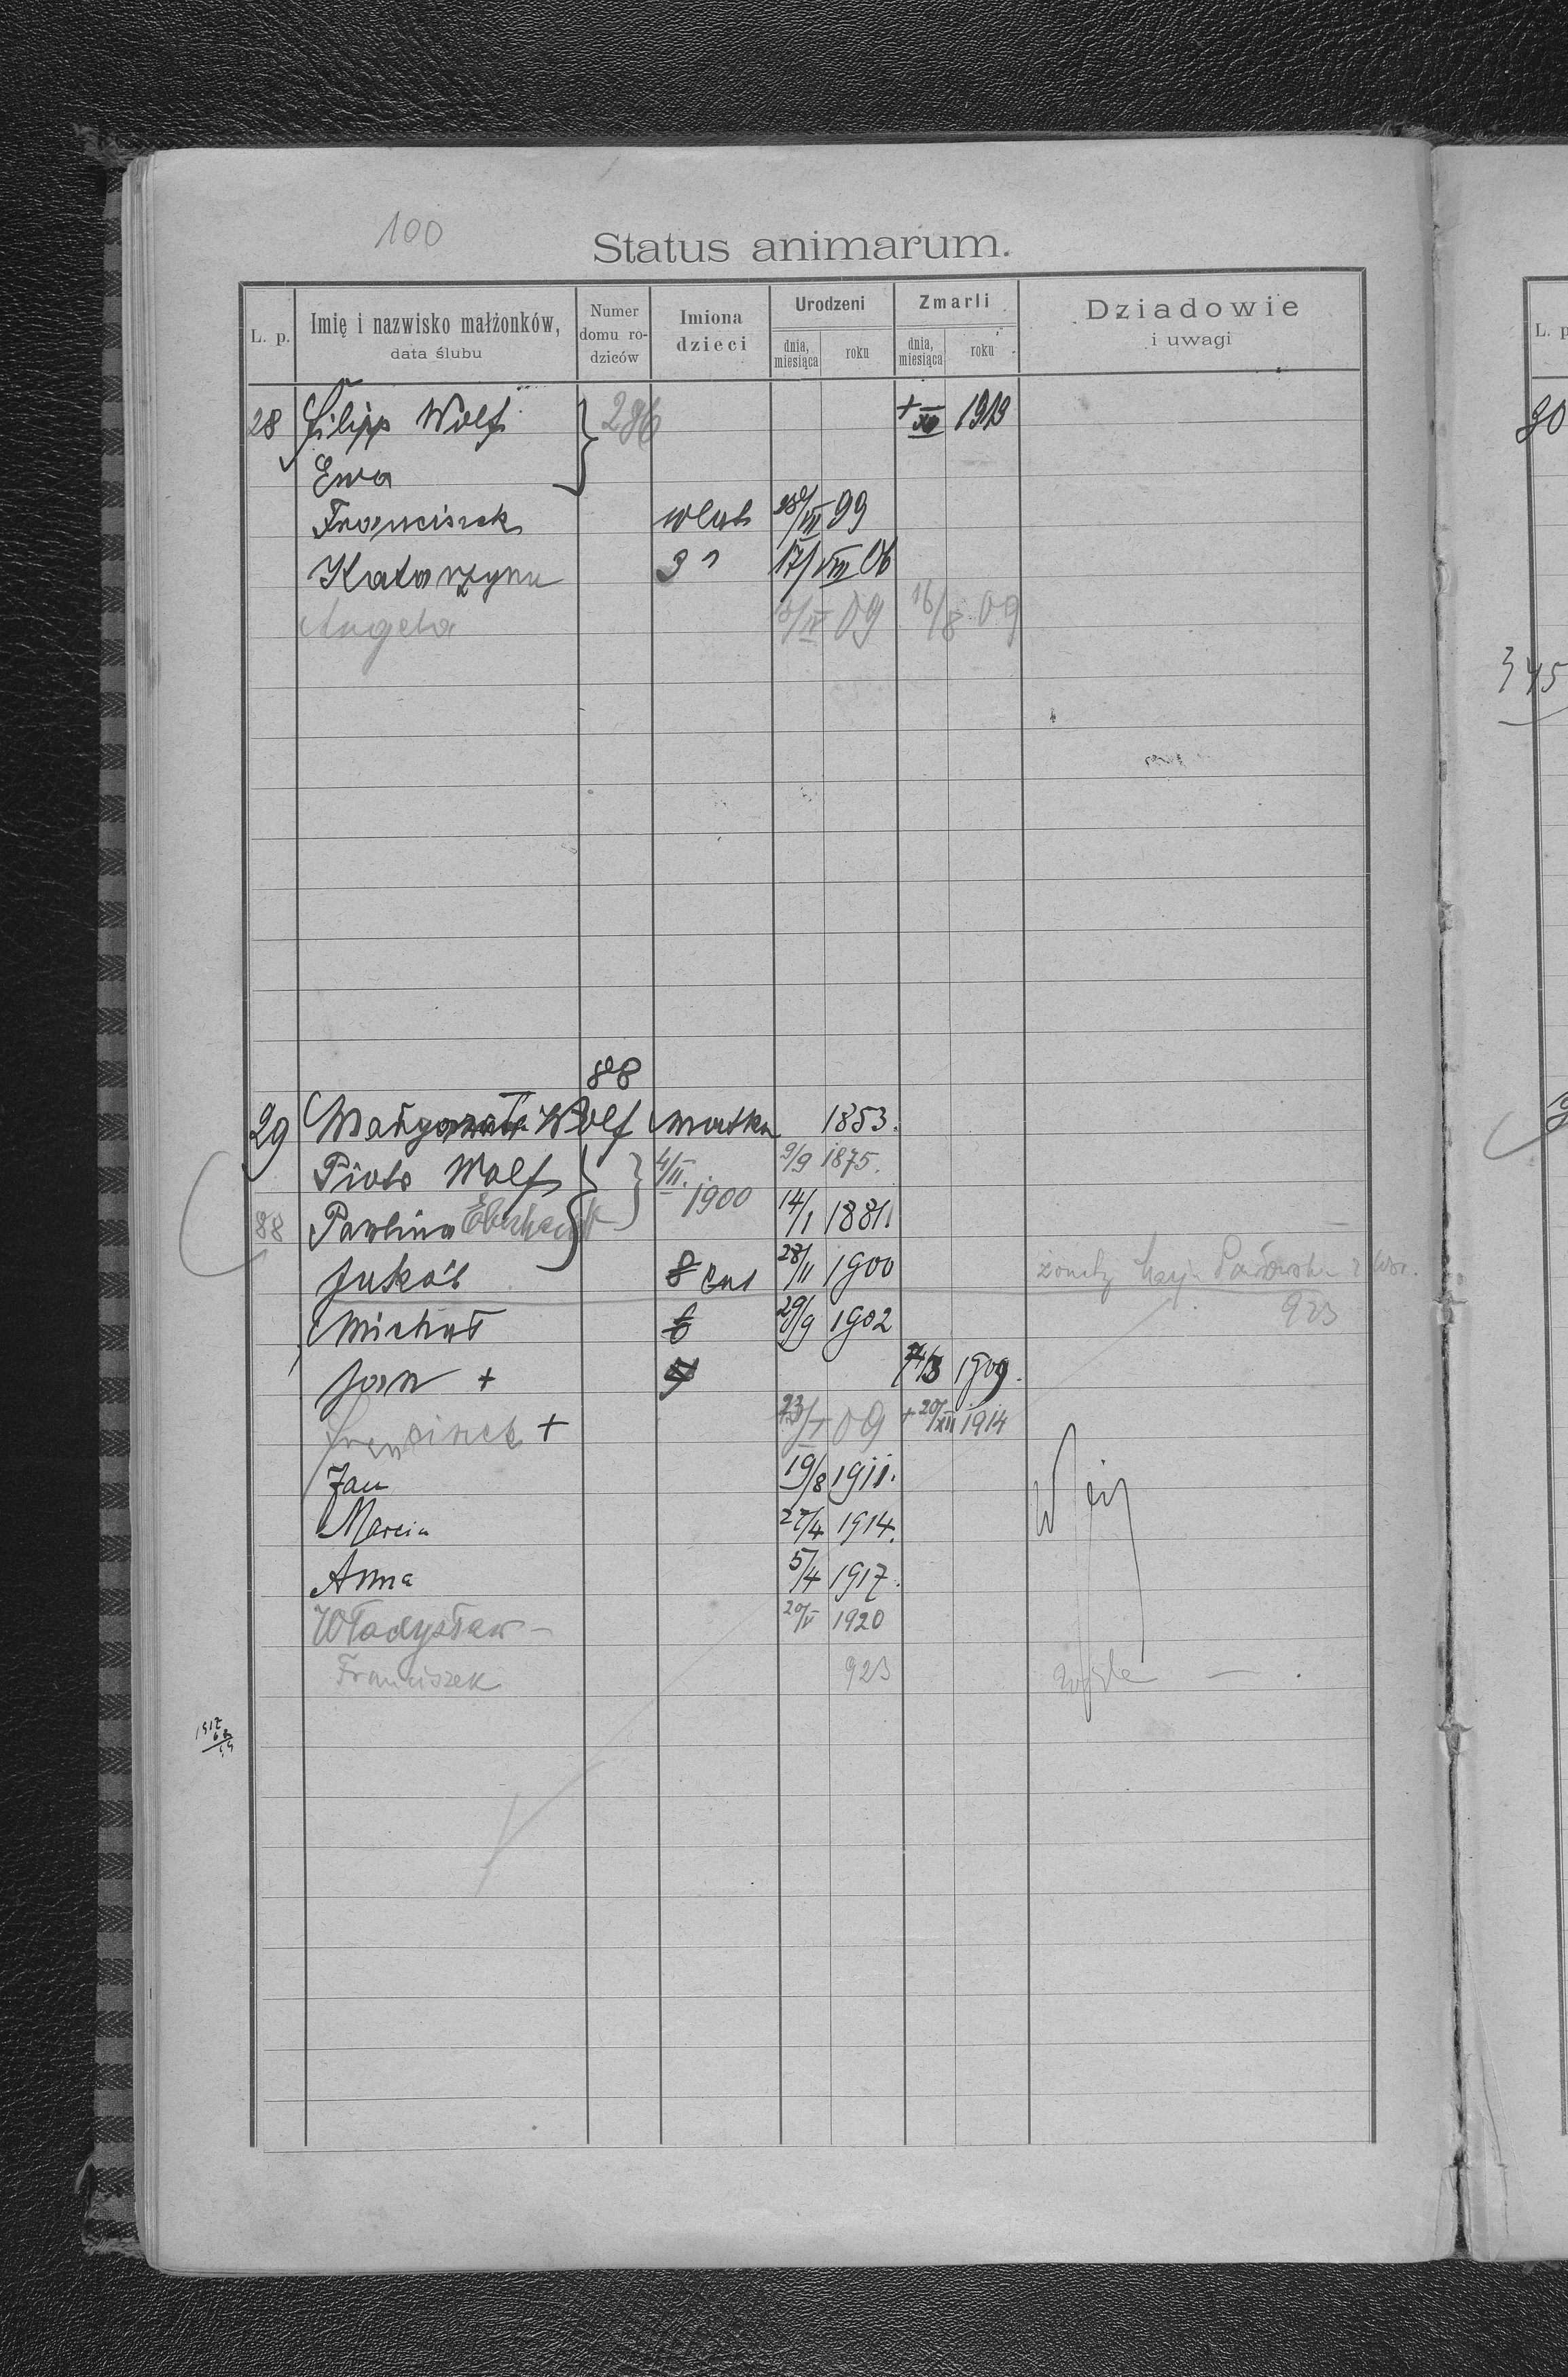 100
Status animarum.
L. p. Imię i nazwisko małżonków, data ślubu Numer domu rodziców Imiona dzieci Urodzeni dnia, miesiąca roku Zmarli dnia, miesiąca roku Dziadowie i uwagi
28 Filipp Wolf 296 + 1919
Ewa
Franciszek 99
Katarzyna 3 17/VIII 06
Angela IV 09 16/8 09
88
29 Małgorzata Wolf matka 1853.
Piotr Wolf 4/II. 1900 9/9 1875.
88 Paulina Eberhardt 14/1 1881
Jakób 8 lat 28/11 1900
923
Michał 6 29/9 1902
Jan + 1909.
Franciszek + 09 + 20/XII 1914
Jan 19/8 1911.
Marcin 27/4 1914.
Anna 5/4 1917.
Władysław – 20/V 1920
Franciszek 923
1917
90
345
L. p